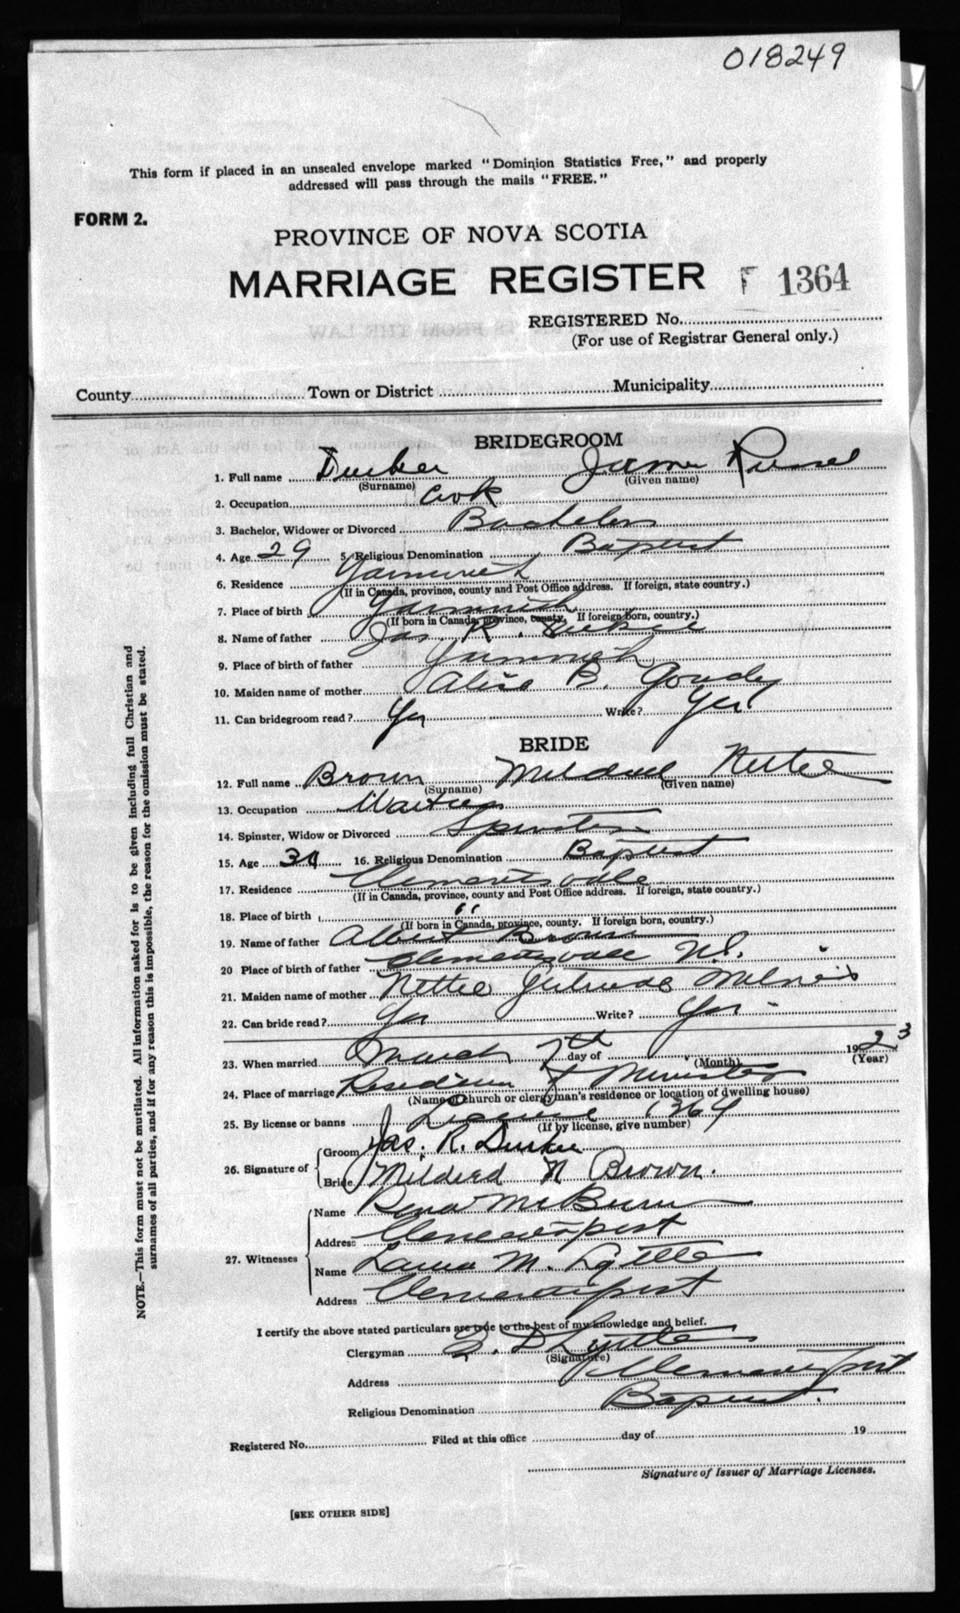 018249
This form if placed in an unsealed envelope marked "Dominion Statistics Free," and properly
addressed will pass through the mails "FREE."
FORM 2.
PROVINCE OF NOVA SCOTIA
MARRIAGE REGISTER F 1364
REGISTERED No.
(For use of Registrar General only.)
County Town or District Municipality
BRIDEGROOM
1. Full name Durkee James Russel
(Surname) (Given name)
2. Occupation Cook
3. Bachelor, Widower or Divorced Bachelor
4. Age 29 5. Religious Denomination Baptist
6. Residence Yarmouth
(If in Canada, province, county and Post Office address. If foreign, state country.)
7. Place of birth Yarmouth
(If born in Canada, province, county. If foreign born, country.)
8. Name of father Jas. R. Durkee
9. Place of birth of father Yarmouth
10. Maiden name of mother Alice B. Goudy
11. Can bridegroom read? Yes Write? Yes
BRIDE
12. Full name Brown Mildred Nettie
(Surname) (Given name)
13. Occupation Waitress
14. Spinster, Widow or Divorced Spinster
15. Age 31 16. Religious Denomination Baptist
17. Residence Clementsvale
(If in Canada, province, county and Post Office address. If foreign, state country.)
18. Place of birth "
(If born in Canada, province, county. If foreign born, country.)
19. Name of father Albert Brown
20 Place of birth of father Clementsvale N.S.
21. Maiden name of mother Nettie Gertrude
22. Can bride read? Yes Write? Yes
23. When married March 7th day of 1923
(Month) (Year)
24. Place of marriage Residence of Minister
(Name of church or clergyman's residence or location of dwelling house)
25. By license or banns License 1364
(If by license, give number)
26. Signature of Groom Jas. R. Durkee
Bride Mildred N Brown.
27. Witnesses Name Rena
Address Clementsport
Name Laura M. Lyttle
Address Clementsport
I certify the above stated particulars are true to the best of my knowledge and belief.
Clergyman D Lyttle
(Signature)
Address Clementsport
Religious Denomination Baptist.
Registered No. Filed at this office day of 19
Signature of Issuer of Marriage Licenses.
[SEE OTHER SIDE]
NOTE.—This form must not be mutilated. All information asked for is to be given including full Christian and
surnames of all parties, and if for any reason this is impossible, the reason for the omission must be stated.